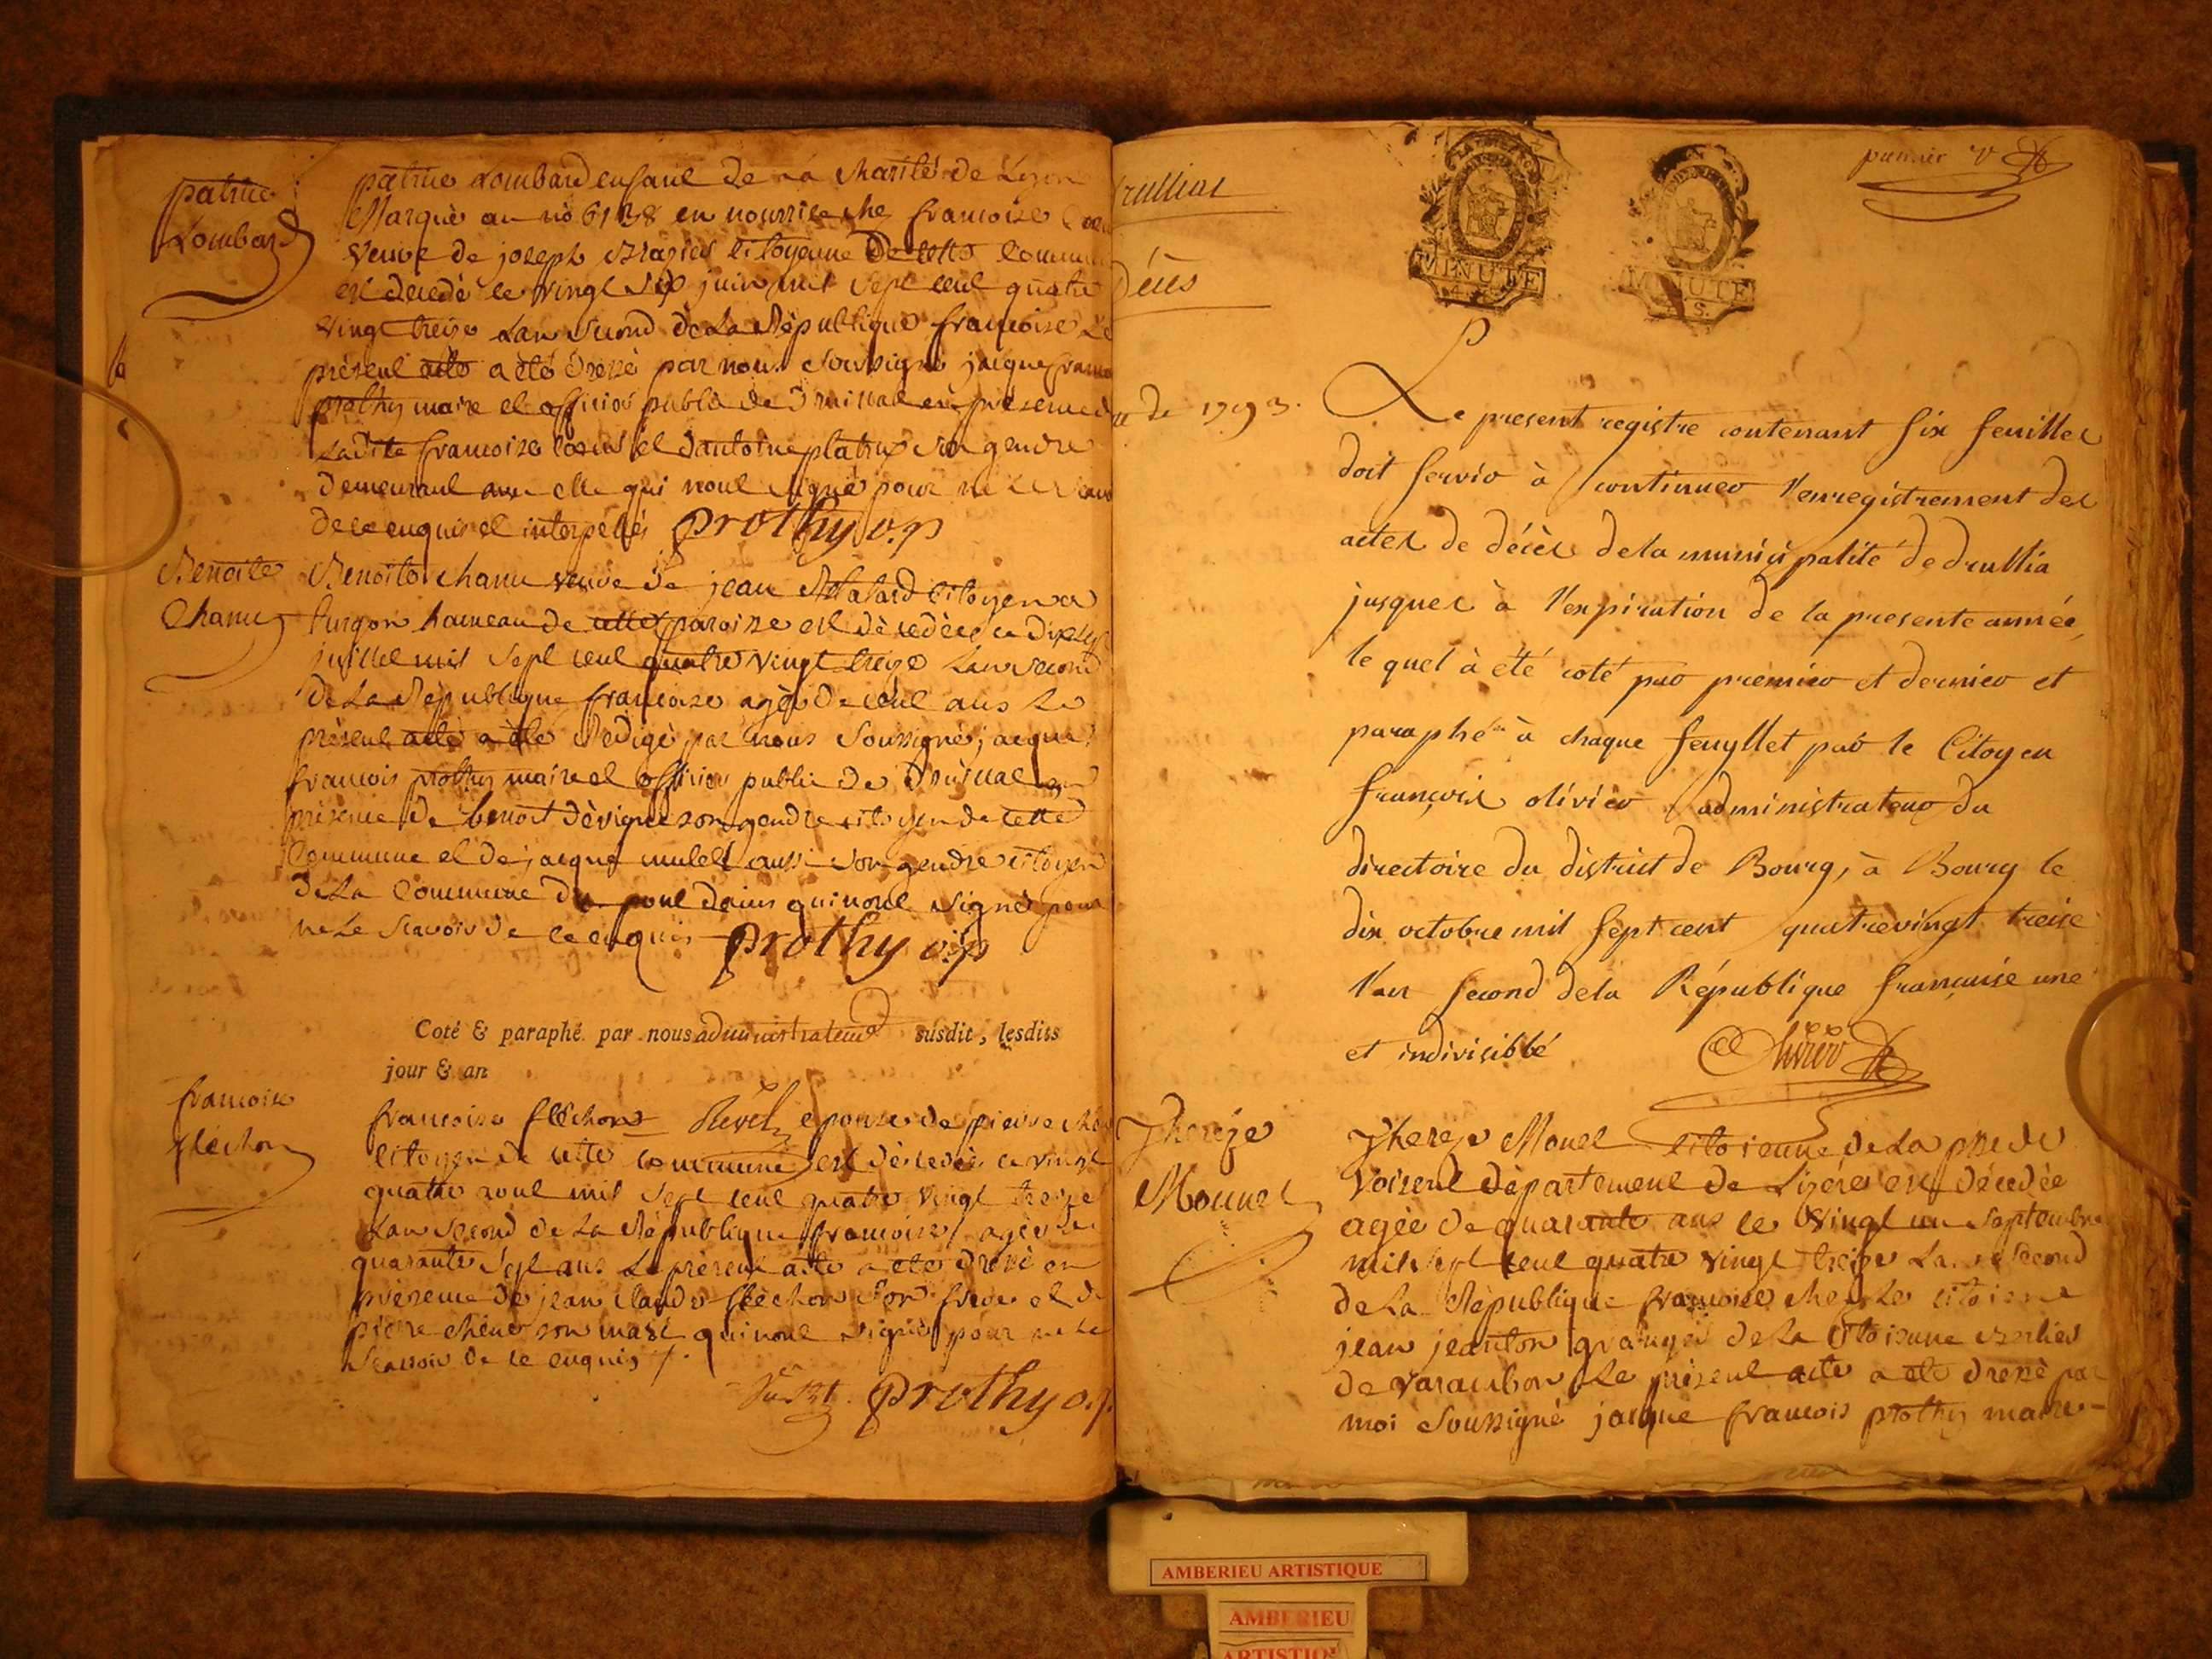 patrice
Lombard
patrice Lombard enfant de La Charité de Lyon
Marqué au no 6138 en nourrice chez francoise
veuve de joseph citoyenne de cette Commu
est décédé le vingt six juin mil sept cent quatre
vingt treize Lan second de La République francoise Le
présent acte a été dressé par nous soussigné jacque franco
prothy maire et officier public de druillat en présence d
Ladite francoise et dantoine platux son gendre
demeurant avec elle qui nont signé pour ne Le scavo
de ce enquis et interpellés prothy o.p
Benoite
Chanu
Benoite chanu veuve de jean citoyen a
turgon hameau de cette paroisse est décédée ce dix sept
juillet mil sept cent quatre vingt treize Lan second
de La République francoise agée de cent ans Le
présent acte a été rédigé par nous soussigné jacque
francois prothy maire et officier public de druillat en
présence de benoit dévigne son gendre citoyen de cette
Commune et de jacque mulet aussi son gendre citoyen
de La Commune du pont dains qui nont signé pour
ne Le scavoir de ce enquis prothy o.p
Coté & paraphé par nous administrateur susdit, lesdits
jour & an
francoise
fléchon
francoise fléchon épouse de pierre
citoyen de cette commune est décédée ce vingt
quatre aout mil sept cent quatre vingt treize
Lan second de La République francoise agée de
quarante sept ans Le présent acte a été dressé en
présence de jean claude fléchon son frere et de
pierre chêne son mari qui nont signé pour ne Le
scavoir de ce enquis
prothy o.p.
premier
rulliat
Décès
MINUTE
4 S.
MINUTE
S.
de 1793.
Le present registre contenant six feuillet
doit servir à continuer l'enregistrement des
actes de décès de la municipalité de drullia
jusques à l'expiration de la presente année,
le quel à été coté par premier et dernier et
paraphé à chaque feuyllet par le Citoyen
françois olivier administrateur du
directoire du district de Bourg, à Bourg le
dix octobre mil sept cent quatrevingt treise
l'an second dela République française une
et indivisible Olivier
Thereze
Mounet
Thereze Monet citoienne de La psse de
voisent département de Lizére est décédée
agée de quarante ans le vingt un septembre
mil sept cent quatre vingt treize Lan second
de La République francoise chez Le citoiene
jean jeanton granger de La citoienne
de varambon Le présent acte a été dressé par
moi soussigné jacque francois prothy maire
AMBERIEU ARTISTIQUE
AMBERIEU
ARTISTIQ